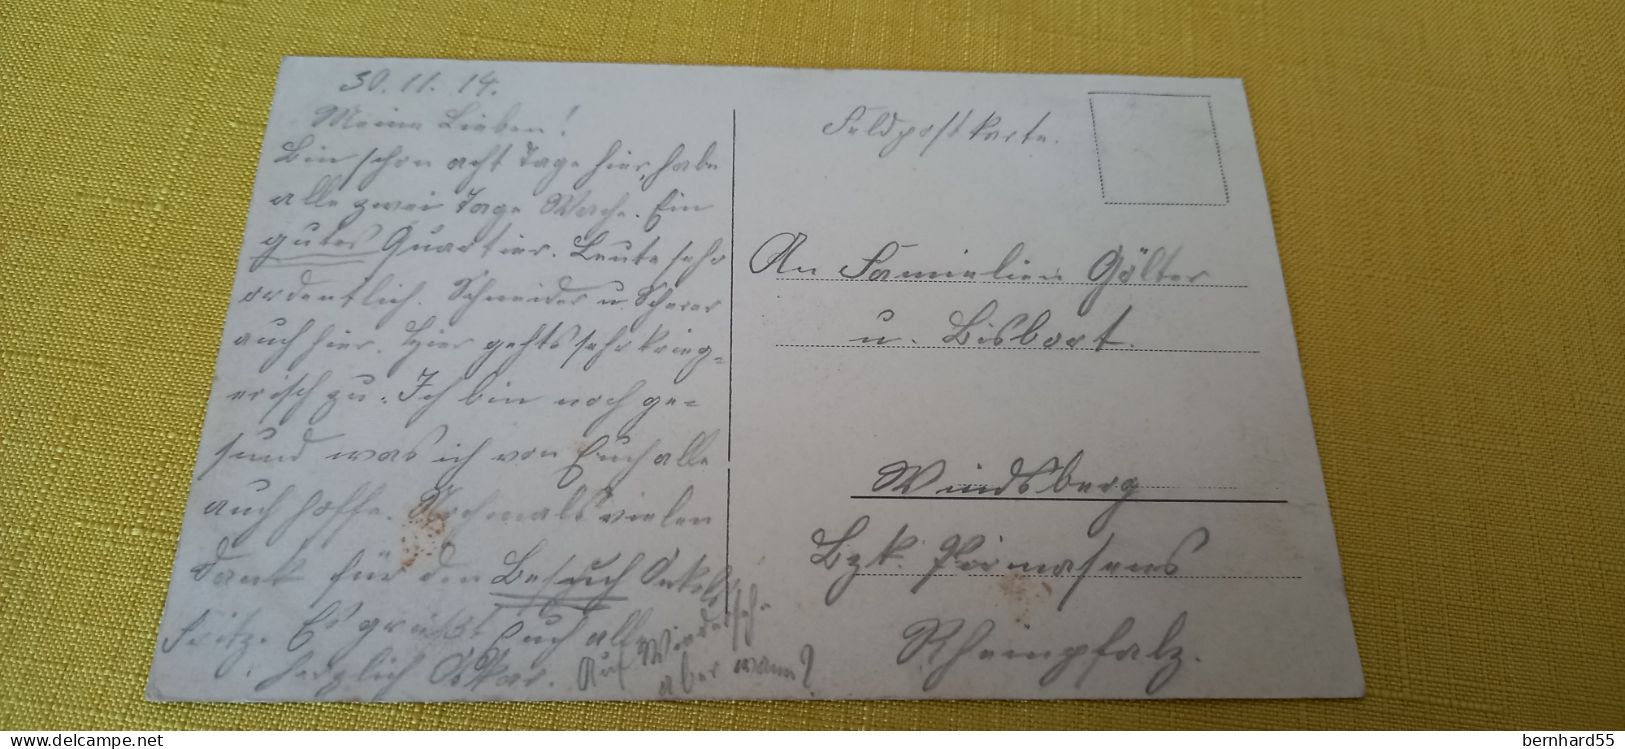 30. 11. 14.
Meine Lieben!
Bin schon acht Tage hier, habe
alle zwei Tage Wache. Ein
gutes Quartier. Leute sehr
ordentlich. Schneider u. Scherer
auch hier. Hier gehts sehr krieg-
erisch zu. Ich bin noch ge-
sund was ich von Euch alle
auch hoffe. Nochmals vielen
Dank für den Besuch Onkels
Fritz. Es grüßt Euch all
herzlich Oskar.
Auf Wiederseh-
aber wann?
Feldpostkarte.
An Familien Gölter
u. Bisbort.
Windsberg
Bzk. Pirmasens
Rheinpfalz.
bernhard55